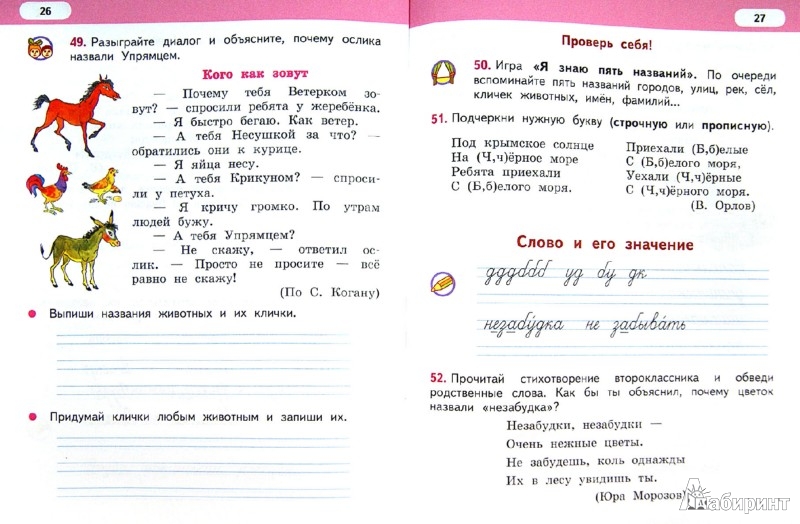 26
49. Разыграйте диалог и объясните, почему ослика
назвали Упрямцем.
Кого как зовут
— Почему тебя Ветерком зо-
вут? — спросили ребята у жеребёнка.
— Я быстро бегаю. Как ветер.
— А тебя Несушкой за что? —
обратились они к курице.
— Я яйца несу.
— А тебя Крикуном? — спроси-
ли у петуха.
— Я кричу громко. По утрам
людей бужу.
— А тебя Упрямцем?
— Не скажу, — ответил ос-
лик. — Просто не просите — всё
равно не скажу!
(По С. Когану)
Выпиши названия животных и их клички.
Придумай клички любым животным и запиши их.
27
Проверь себя!
50. Игра «Я знаю пять названий». По очереди
вспоминайте пять названий городов, улиц, рек, сёл,
кличек животных, имён, фамилий...
51. Подчеркни нужную букву (строчную или прописную).
Под крымское солнце
На (Ч,ч)ёрное море
Ребята приехали
С (Б,б)елого моря.
Приехали (Б,б)елые
С (Б,б)елого моря,
Уехали (Ч,ч)ёрные
С (Ч,ч)ёрного моря.
(В. Орлов)
Слово и его значение
дддббб уд бу дк
незабу́дка не забыва́ть
52. Прочитай стихотворение второклассника и обведи
родственные слова. Как бы ты объяснил, почему цветок
назвали «незабудка»?
Незабудки, незабудки —
Очень нежные цветы.
Не забудешь, коль однажды
Их в лесу увидишь ты.
(Юра Морозов)
Лабиринт